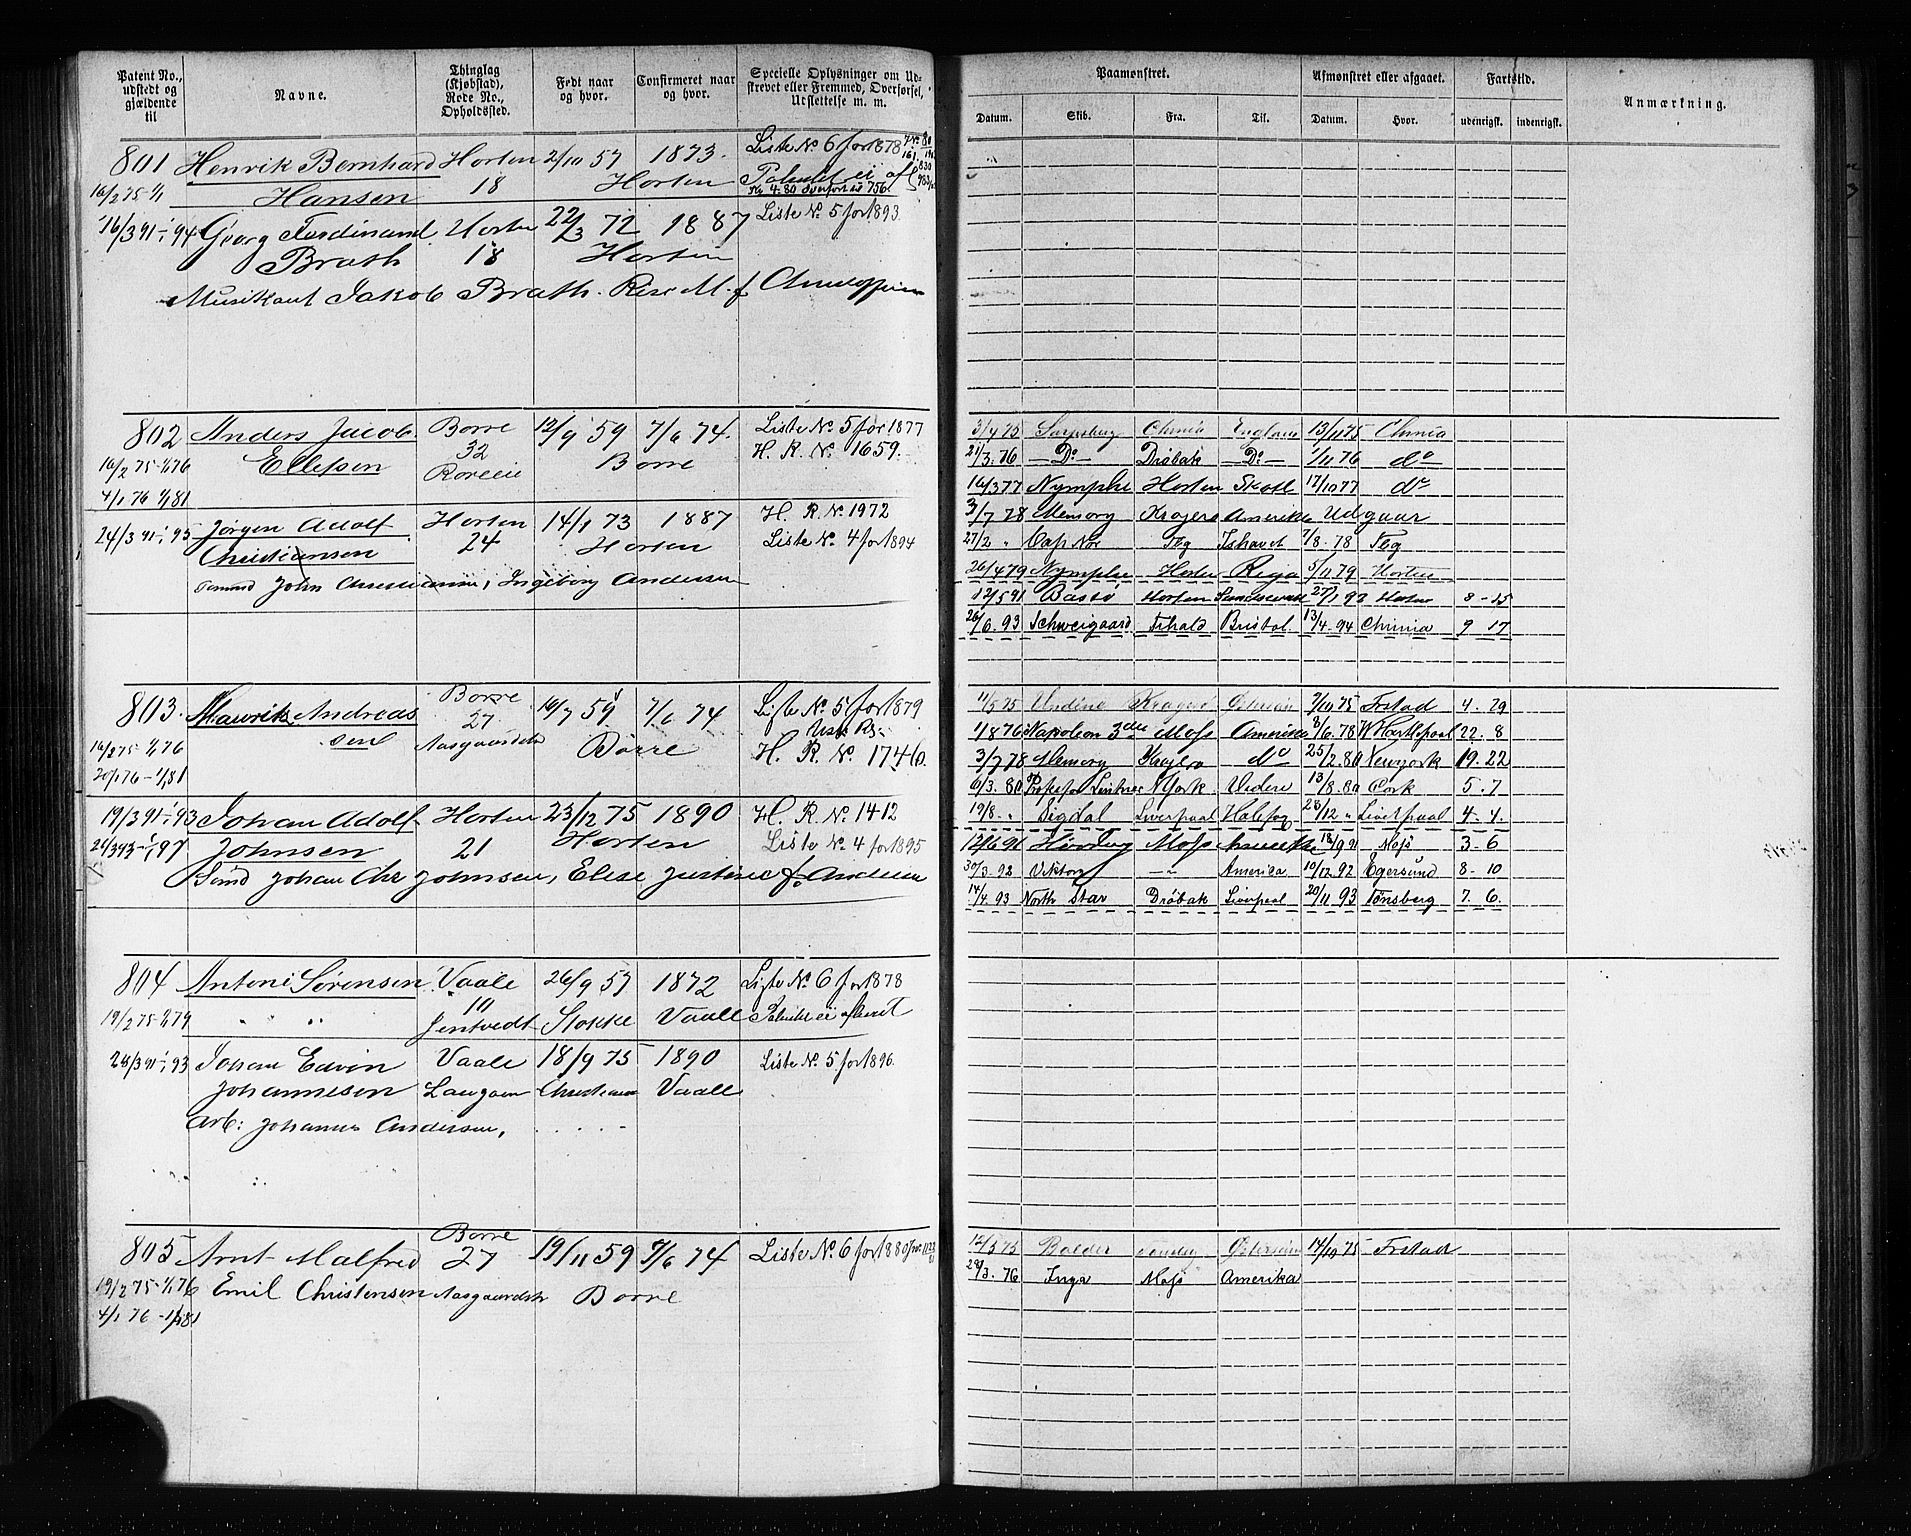 Patent No., udstedt og gjældende til
Navne.
Thinglag (Kjøbstad), Rode No., Opholdssted.
Født naar og hvor.
Confirmeret naar og hvor.
Specielle Oplysninger om Udstrevet eller Fremmed, Overførsel, Udslettelse m. m.
Paamønstret.
Afmønstret eller afgaaet.
Fartstid.
Anmærkning.
Datum. Skib. Fra. Til. Datum. Hvor. udenrigsk. indenrigsk.
801 Henrik Bernhard Horten 2/10 57 1873. Liste No 6 for 1878
16/2 75 1/1 Hansen 18 Horten
16/3 91 - 1/1 94 Georg Ferdinand Horten 22/3 72 1887 Liste No. 5 for 1893
Brath 18 Horten
Musikant Jakob Brath.
802 Anders Jacob Borre 12/9 59 7/6 74. Liste No. 5 for 1877
16/2 75 - 1/1 76 Ellefsen 32 Borre H. R. No. 1659.
4/1 76 1/1 81
3/4 75 Sarpsborg Chnia England 13/11 75 Chnia
21/3. 76 - Do - Drøbak - Do - 1/11 76 do
16/3 77 Nymphe Horten Skotl 17/10 77 do
3/7 78 Memory Kragerø Amerika Udgaar
24/3 91 - 1/1 95 Jørgen Adolf Horten 14/1 73 1887 H. R. No 1972
Christiansen 24 Horten Liste No. 4 for 1894
Tømmd John Christiansen, Ingeborg Andersen
27/2 " Cap Nor Tbg Ishavet 7/8 - 78 Tbg
26/4 79 Nymphe Horten Riga 5/11 79 Horten
12/5 91 Bastø Horten Sundsvall 27/1 92 Horten 8 - 15
26/6. 93 Schweigaard Frhald Bristol. 13/4. 94 Chnia 9 17
803. Mauritz Andreas Borre 7/6 74 Liste No. 5 for 1879
sen 27
16/2 75 - 1/1 76 Aasgaardstr Borre H. R. No. 1746.
20/1 76 - 1/1 81
11/5 75 Undine Kragerø Østersøen 7/10 75 Frstad 4. 29
1/8 76 Napoleon 3die Moss Amerika 8/6. 78 W Hartlepool 22. 8
3/7 78 Memory Kragerø do 25/2. 80 Newyork 19. 22
6/3. 80 Profesor Lintner N York Videre 13/8. 80 Cork 5. 7
19/3 91 - 1/1 93 Johan Adolf Horten 23/12 75 1890 H. R. No. 1412
Johnsen 21 Horten Liste No. 4 for 1895
Tømd Johan Chr Johnsen, Elise Justine f. Andersen
19/8. " Sigdal Liverpool 28/12 " Liverpool 4. 4
12/6 91 Moss 18/9 91 Moss 3. 6
30/3. 92 Viktor - " - Amerika 10/12. 92 Egersund 8. 10
14/4. 93 North Star Drøbak Liverpool 20/11 93 Tønsberg 7. 6.
804 Antoni Sørensen Vaale 26/9 57 1872 Liste No. 6 for 1878
19/2 75 - 1/1 79 " " Jentvedt Stokke Vaale Patentet ei afhent
28/3 91 - 1/1 93 Johan Edvin Vaale 18/9 75 1890 Liste No. 5 for 1896.
Johannesen Langøen Christiania Vaale
Arb: Johannes Andersen, . . . .
805 Arnt Malfred Borre 27 19/11 59 7/6 74 Liste No. 6 for 1880
19/2 75 - 1/1 76 Emil Christensen Aasgaardstr Borre
4/1 76 - 1/1 81
12/5 75 Balder Østersøen 14/10 75 Frstad
28/3. 76 Inga Moss Amerika